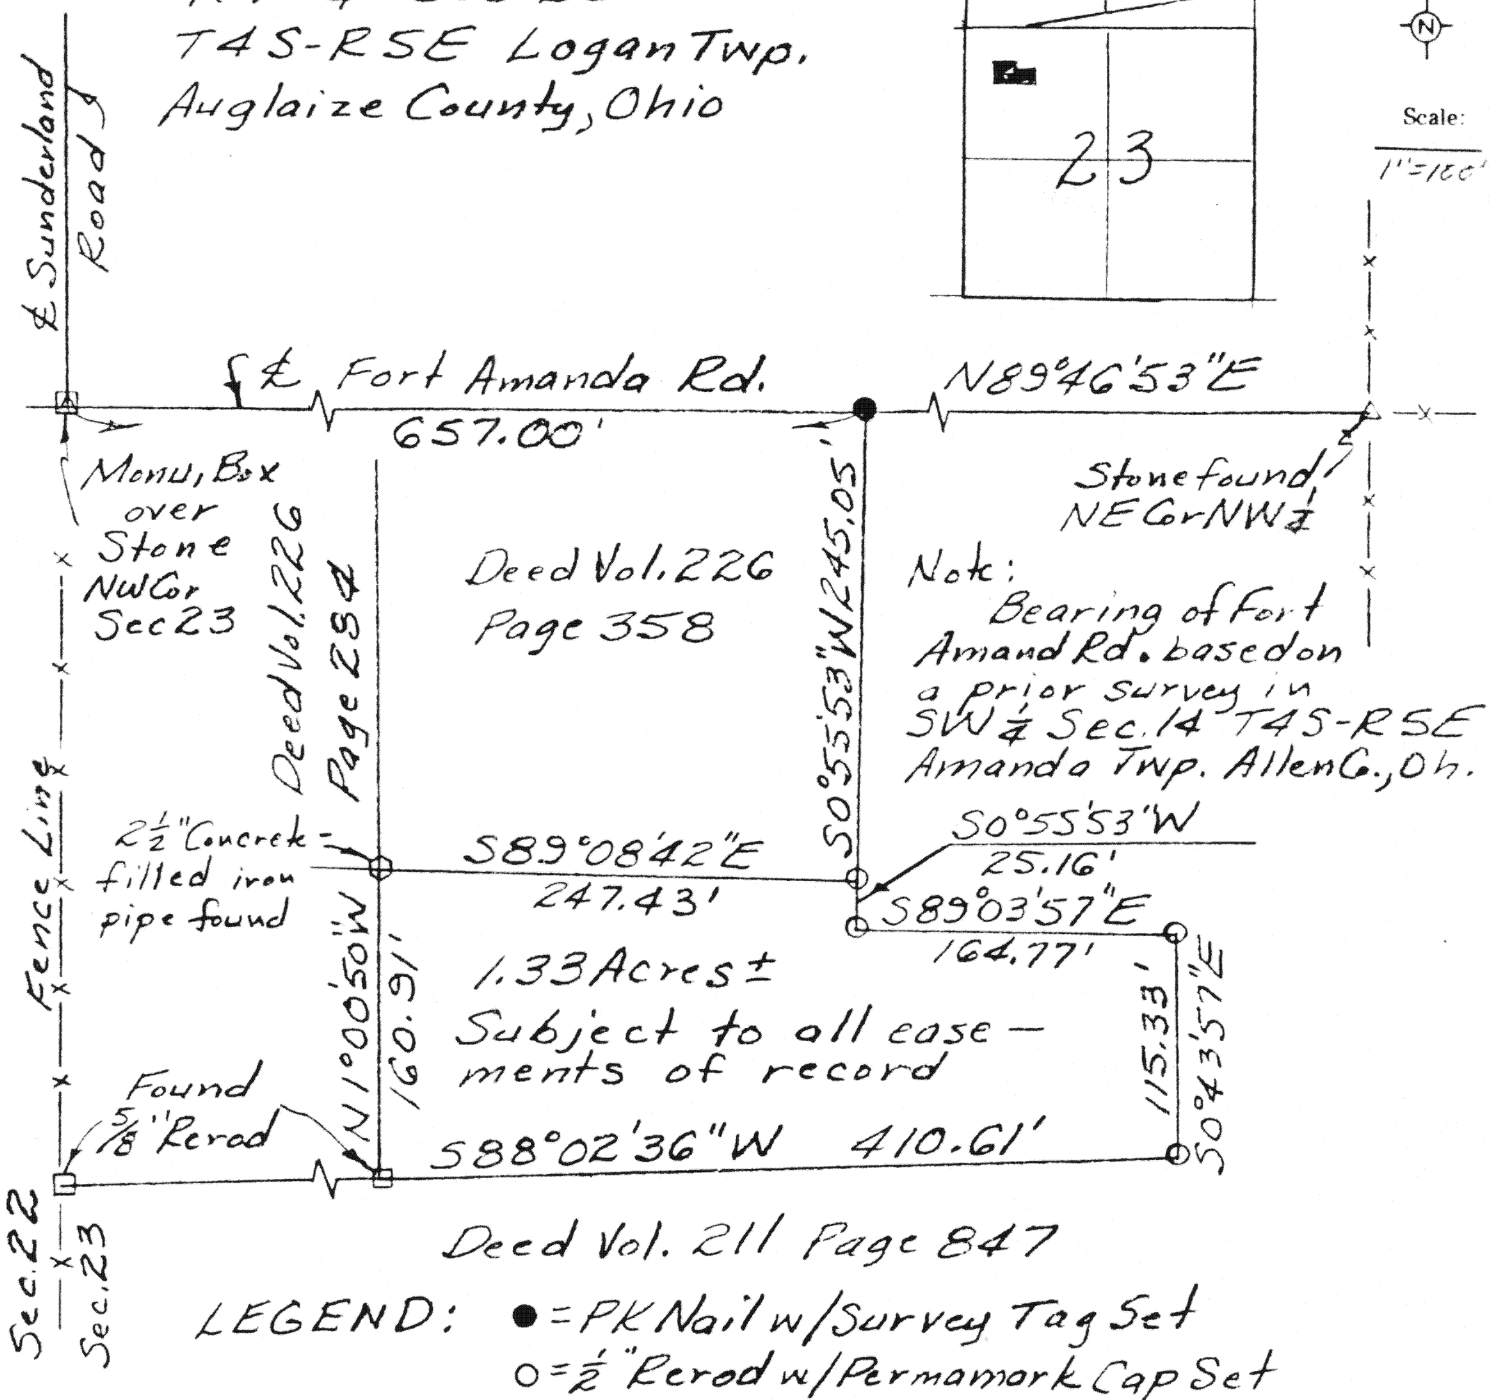 T4S-R5E Logan Twp.
Auglaize County, Ohio
℄ Sunderland
Road
23
N
Scale:
1"=100'
℄ Fort Amanda Rd.
N89°46'53"E
657.00'
Monu, Box
over
Stone
NW Cor
Sec 23
Stone found
NE Cor NW ¼
Deed Vol. 226
Page 284
Deed Vol. 226
Page 358
S0°55'53"W 245.05'
Note:
Bearing of Fort
Amand Rd. based on
a prior survey in
SW ¼ Sec. 14 T4S-R5E
Amanda Twp. Allen Co., Oh.
Fence Line
2½" Concrete =
filled iron
pipe found
S89°08'42"E
247.43'
S0°55'53"W
25.16'
S89°03'57"E
164.77'
N1°00'50"W
160.91'
1.33 Acres ±
Subject to all ease-
ments of record
115.33'
S0°43'57"E
Found
5/8" Rerod
S88°02'36"W 410.61'
Sec. 22
Sec. 23
Deed Vol. 211 Page 847
LEGEND: ● = PK Nail w/Survey Tag Set
○ = ½" Rerod w/Permamark Cap Set